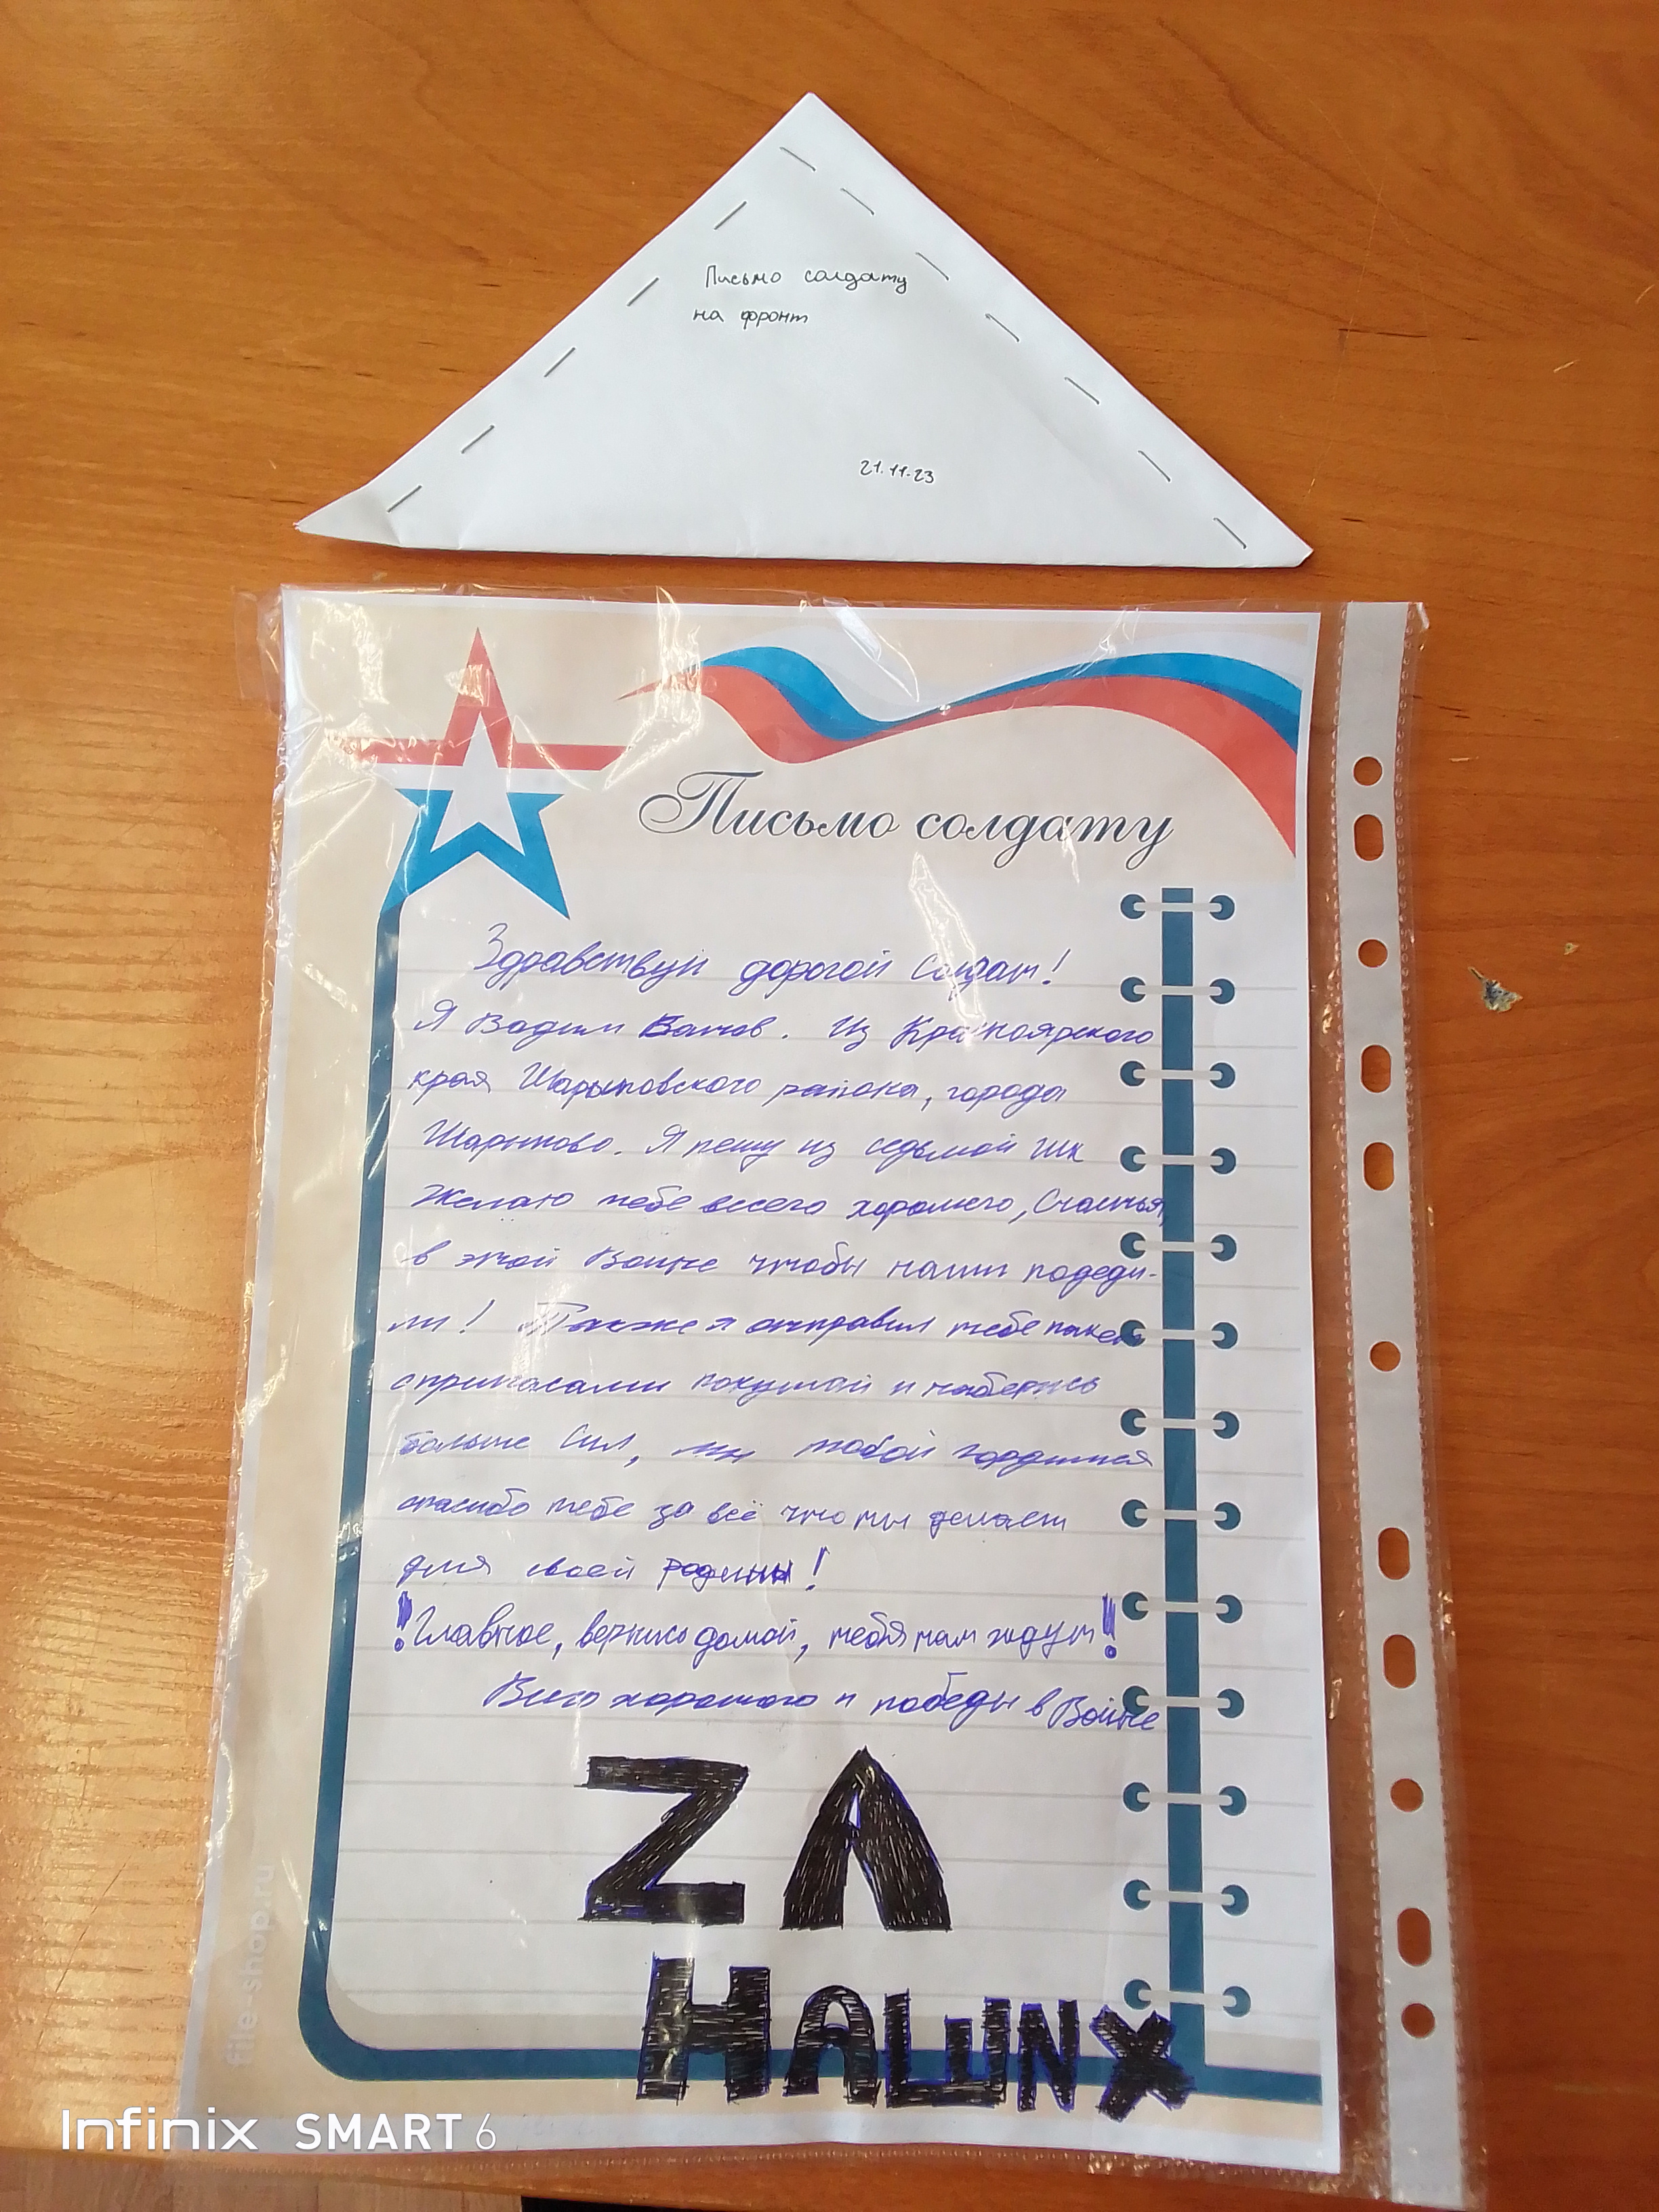 Письмо солдату
на фронт
21.11.23
Письмо солдату
Здравствуй дорогой Солдат!
Я Вадим. Из Красноярского
края Шарыповского района, города
Шарыпово. Я пешу из седьмой шк
Желаю тебе всего хорошего, Счастья,
в этой Войне чтобы наши победи-
ли! Также я отправил тебе пакет
с припасами покушай и наберись
больше Сил, мы тобой гордимся
спасибо тебе за всё что ты делаеш
для своей родины!
!Главное, вернись домой, тебя там ждут!
Всего хорошего и победы в Войне
ZA
НАШNХ
file-shop.ru
Infinix SMART 6